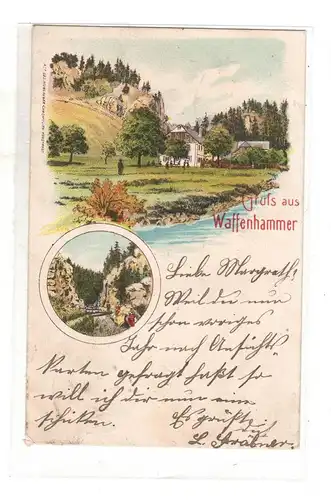 Gruſs aus
Waffenhammer
Liebe Margreth!
Weil du nun
schon voriges
Jahr nach Ansichts-
karten gefragt haßt so
will ich dir nun eine
schicken. Es grüßt
dich
L.